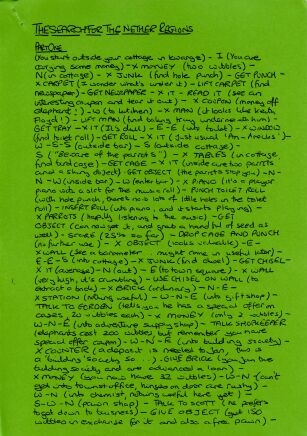 THE SEARCH FOR THE NETHER REGIONS
PART ONE
(You start outside your cottage in lounge) - I (You are
carrying some money) - X MONEY (two wibbles) -
N (in cottage) - X JUNK (find hole punch) - GET PUNCH -
X CARPET (I wonder what's under it) - LIFT CARPET (find
newspaper) - GET NEWSPAPER - X IT - READ IT (see an
interesting coupon and tear it out) - X COUPON (money off
elephants!) - W (to kitchen) - X MAN (it looks like Keith
Floyd!) - LIFT MAN (find baking tray underneath him) -
GET TRAY - X IT (It's dull) - E - E (into toilet) - X WINDOW
(find toilet roll) - GET ROLL - X IT (Just usual
W - S - S (outside cottage) - S (outside cottage)
S ("Beware of the parrots") - X TABLES (in cottage
find birdcage) - GET CAGE - X IT (inside are two parrots
and a shiny object) - GET OBJECT (the parrots stop you) - N -
N - W (inside bar) - W (enter bar) - X PIANO (it's a player
piano with a slot for the music roll) - PUNCH TOILET ROLL
(with hole punch, there's now lots of little holes in the toilet
roll) - INSERT ROLL (into piano, and it starts playing)
X PARROTS (happily listening to the music) - GET
OBJECT (Can now get it, and grab a handful of seed as
well) - SCORE (25% so far) - DROP CAGE AND PUNCH
(no further use) - X OBJECT (looks valuable) - E -
X WALL (see a barometer - might come in useful later)
E - E - S (into cottage) - X JUNK (find chisel) - GET CHISEL -
X IT (average) - N (out) - E (to town square) - X WALL
(very high, it's crumbling) - USE CHISEL ON WALL (to
extract a brick) - X BRICK (ordinary) - N - E -
X STATION (nothing useful) - W - N - E (into gift shop) -
TALK TO
cases, 20 wibbles each) - X MONEY (only 2 wibbles) -
W - N - E (into adventure supply shop) - TALK SHOPKEEPER
(elephants cost 200 wibbles but remember you have
special offer coupon) - W - N - E (into building society) -
X COUNTER (a deposit is needed to join, this is
a 'building' society so...) - GIVE BRICK (you join the
building society and are advanced a loan)
X MONEY (you now have 32 wibbles) - W - N (can't
get into post office, hinges on door are rusty) -
W - N (into chemist, nothing useful here yet) -
S - W - N (pawn shop) - TALK TO SCOTT (he prefers
to get down to business) - GIVE OBJECT (get 150
wibbles in exchange for it, and also a free prawn)